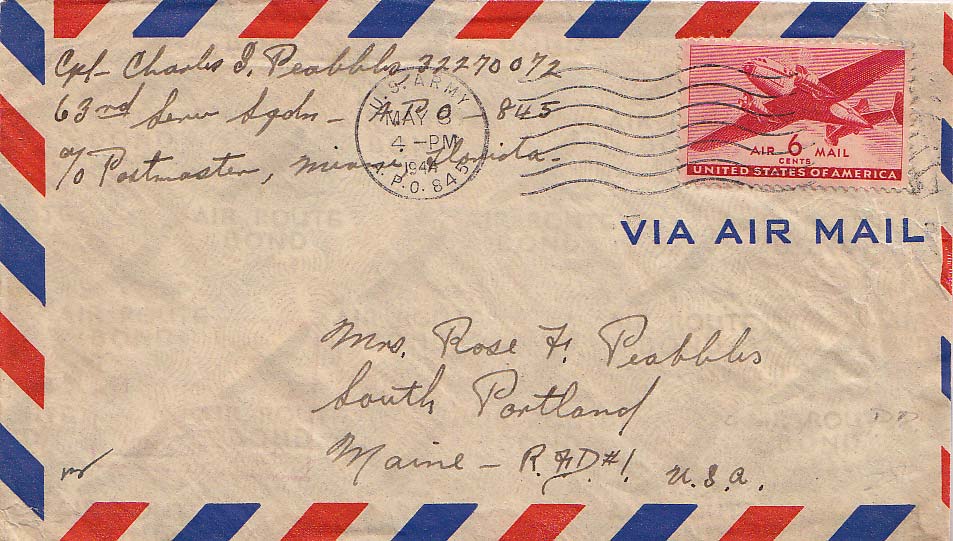 Cpl- Charles I. Peabbles 32270072
63rd Serv Sqdn - A.P.O - 845
c/o Postmaster, Miami, Florida.
U.S. ARMY
MAY 3
4 - PM
1944
A.P.O. 845
AIR 6 MAIL
CENTS
UNITED STATES OF AMERICA
VIA AIR MAIL
Mrs. Rose F. Peabbles
South Portland
Maine - R.F.D #1. U.S.A.